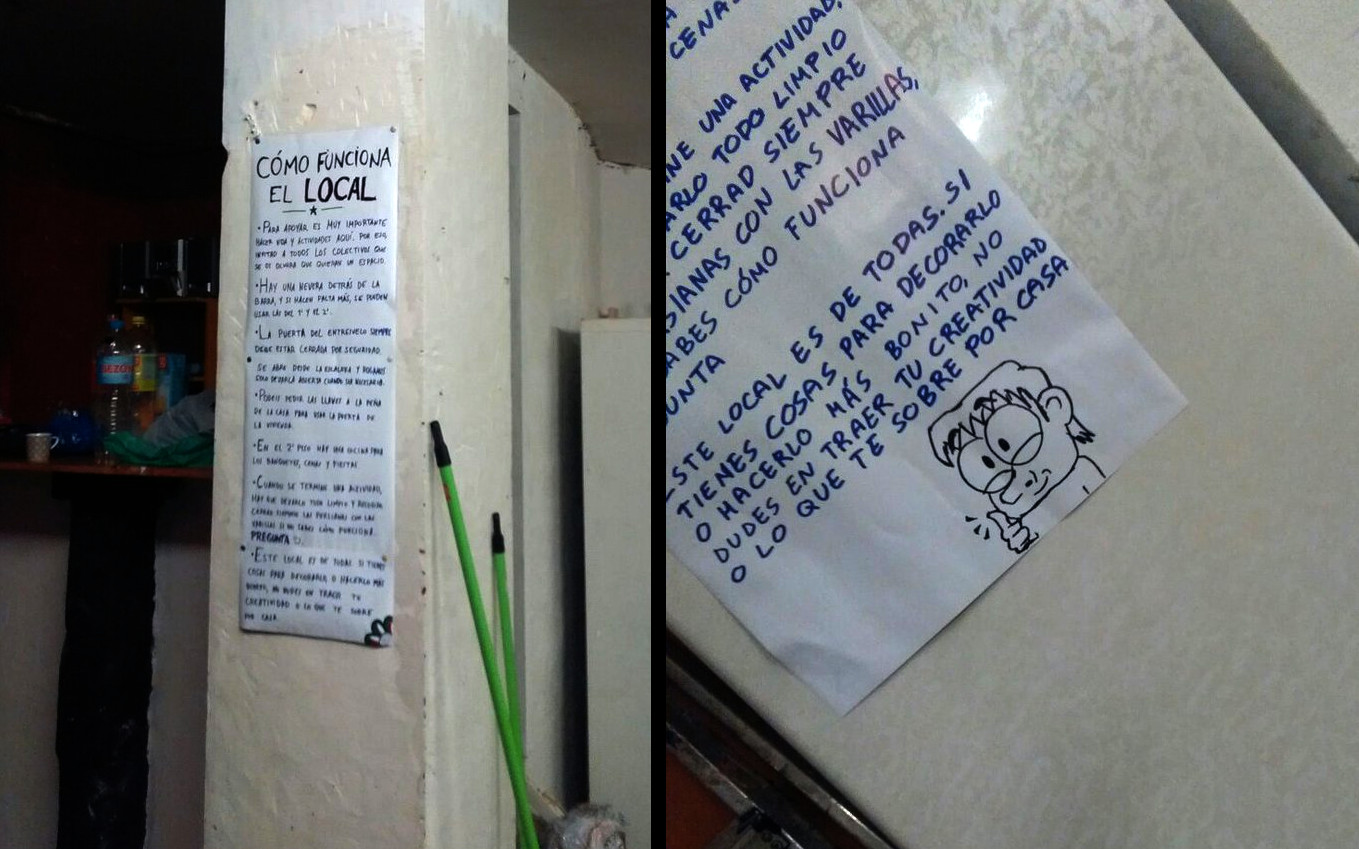 CÓMO FUNCIONA
EL LOCAL
• PARA APOYAR ES MUY IMPORTANTE
HACER VIDA Y ACTIVIDADES AQUÍ. POR ESO,
INVITAD A TODOS LOS COLECTIVOS QUE
SE OS OCURRA QUE QUIERAN UN ESPACIO.
• HAY UNA NEVERA DETRÁS DE LA
BARRA, Y SI HACEN FALTA MÁS, SE PUEDEN
USAR LAS DEL 1º Y EL 2º.
• LA PUERTA DEL ENTRESUELO SIEMPRE
DEBE ESTAR CERRADA POR SEGURIDAD.
SE ABRE DESDE LA ESCALERA Y
SOLO DEJARLA ABIERTA CUANDO SEA NECESARIO.
• PODÉIS PEDIR LAS LLAVES A LA PEÑA
DE LA CASA PARA USAR LA PUERTA DE
LA VIVIENDA.
• EN EL 2º PISO HAY UNA COCINA PARA
LOS BANQUETES, CENAS Y FIESTAS.
• CUANDO SE TERMINE UNA ACTIVIDAD,
HAY QUE DEJARLO TODO LIMPIO Y RECOGIDO
CERRAD SIEMPRE LAS PERSIANAS CON LAS
VARILLAS SI NO SABES CÓMO FUNCIONA
PREGUNTA
• ESTE LOCAL ES DE TODAS. SI TIENES
COSAS PARA DECORARLO O HACERLO MÁS
BONITO, NO DUDES EN TRAER TU
CREATIVIDAD O LO QUE TE SOBRE
POR CASA
SEZO
CENA
UNA ACTIVIDAD,
TODO LIMPIO
CERRAD SIEMPRE
CON LAS VARILLAS,
CÓMO FUNCIONA
ESTE LOCAL ES DE TODAS. SI
TIENES COSAS PARA DECORARLO
O HACERLO MÁS BONITO, NO
DUDES EN TRAER TU CREATIVIDAD
O LO QUE TE SOBRE POR CASA